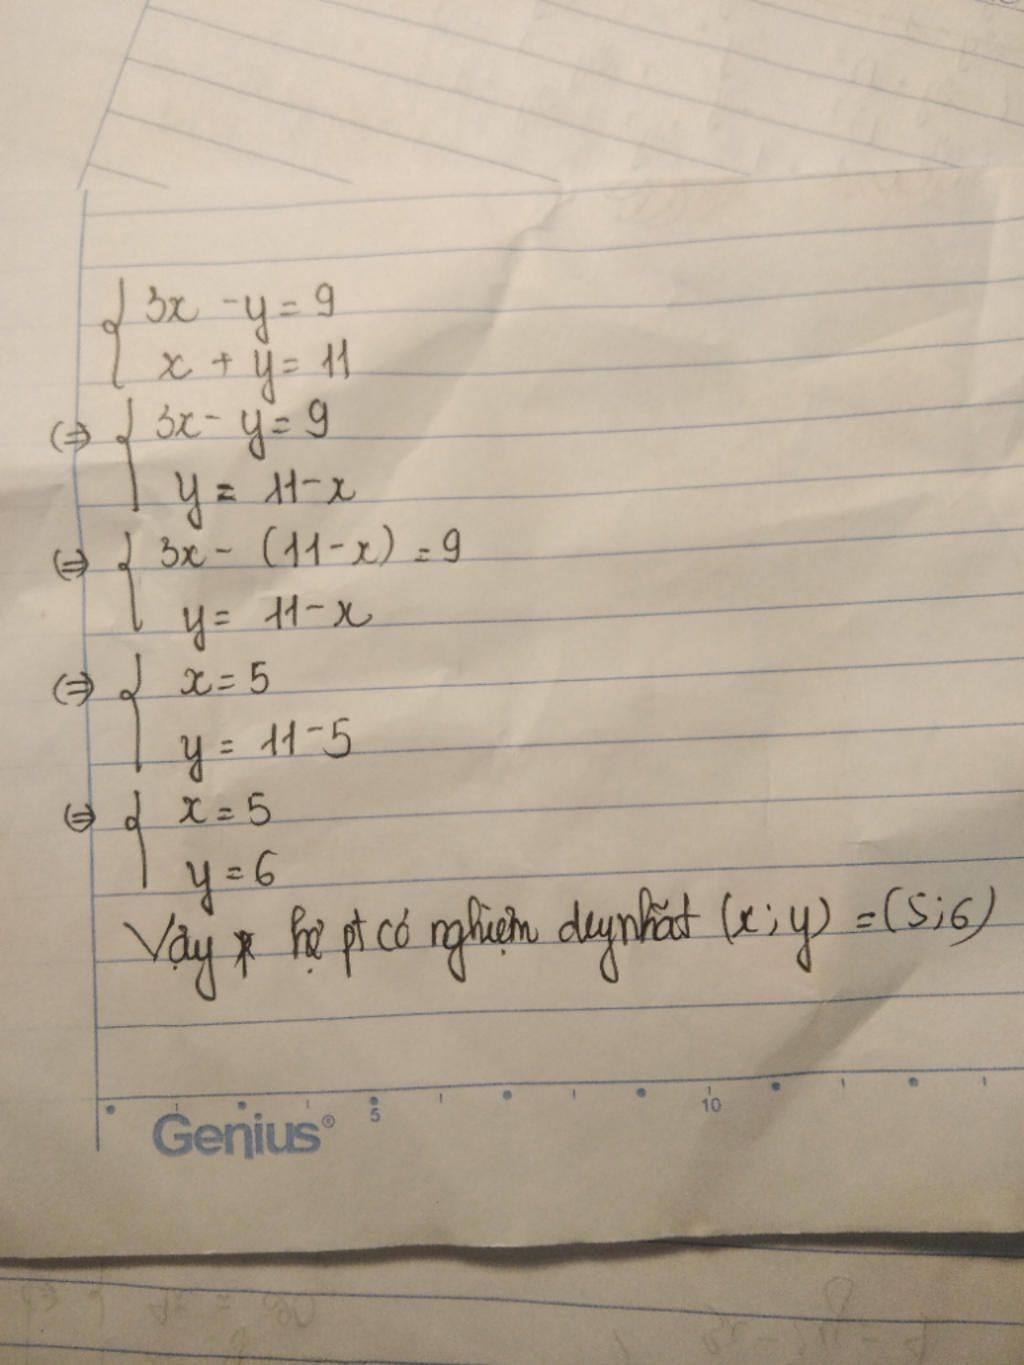 3x - y = 9
x + y = 11
(=) 3x - y = 9
y = 11 - x
(=) 3x - (11 - x) = 9
y = 11 - x
(=) x = 5
y = 11 - 5
(=) x = 5
y = 6
Vậy hệ pt có nghiệm duy nhất (x; y) = (5; 6)
5 10
Genius®